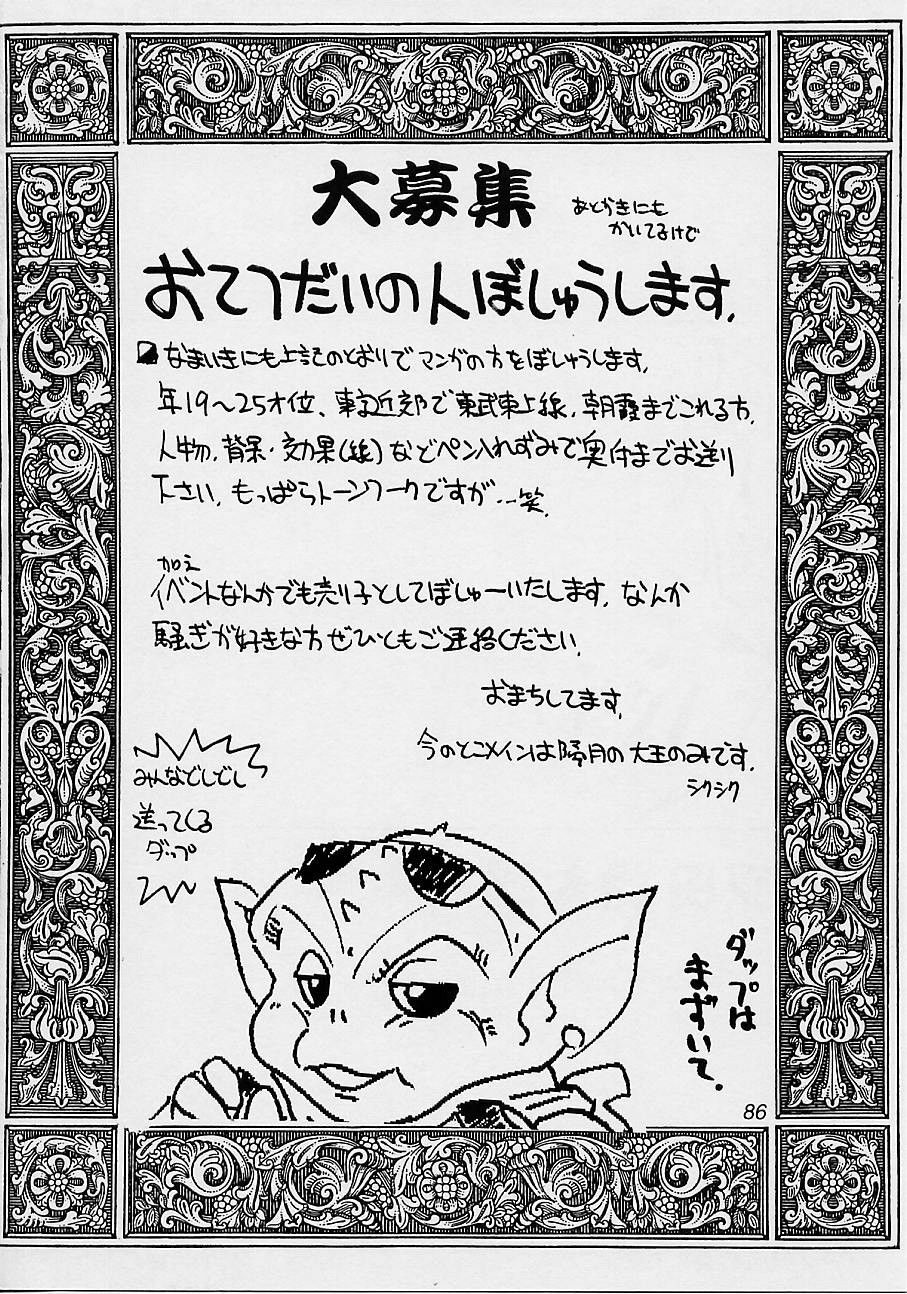 大募集
あとがきにも
かいてるけど
おてつだいの人ぼしゅうします.
なまいきにも上記のとおりで マンガの方をぼしゅうします.
年19〜25才位、東京近郊で東武東上線.朝霞までこれる方.
人物.背景・効果(線)などペン入れずみで奥付までお送り
下さい.もっぱらトーンワークですが...笑.
加え
イベントなんかでも売り子としてぼしゅーいたします.なんか
騒ぎが好きな方ぜひともご連絡ください.
おまちしてます.
今のとこメインは隔月の大王のみです.
シクシク
みんなどしどし
送ってくる
ダップ
ダップは
まずいて.
86